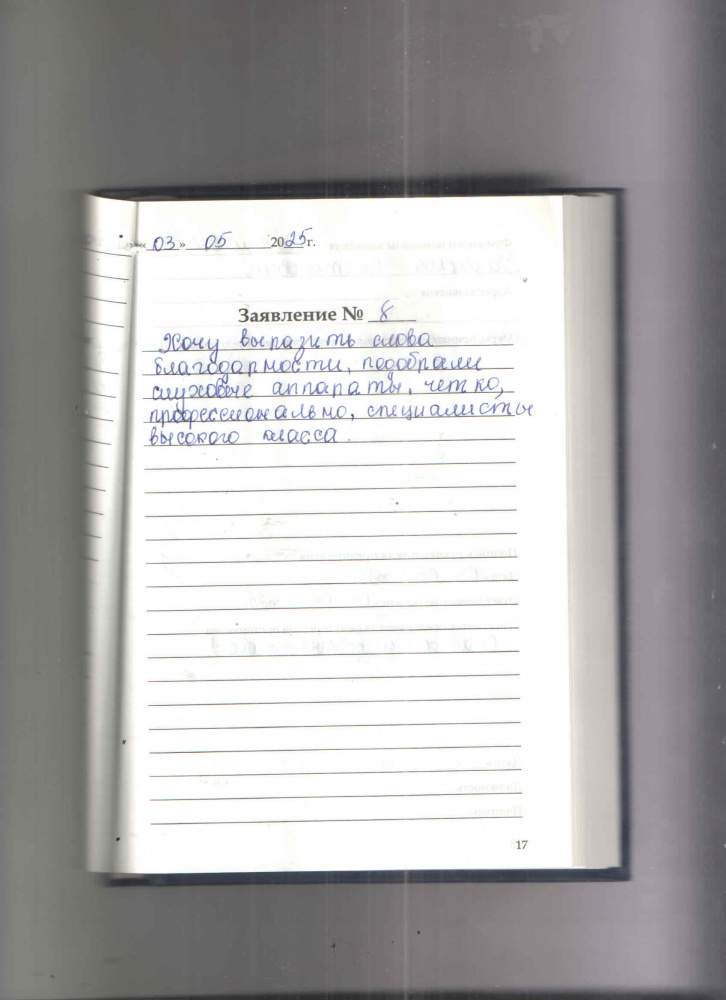 « 03 » 05 2025 г.
Заявление № 8
Хочу выразить слова
благодарности, подобрали
слуховые аппараты, четко,
профессионально, специалисты
высокого класса.
17